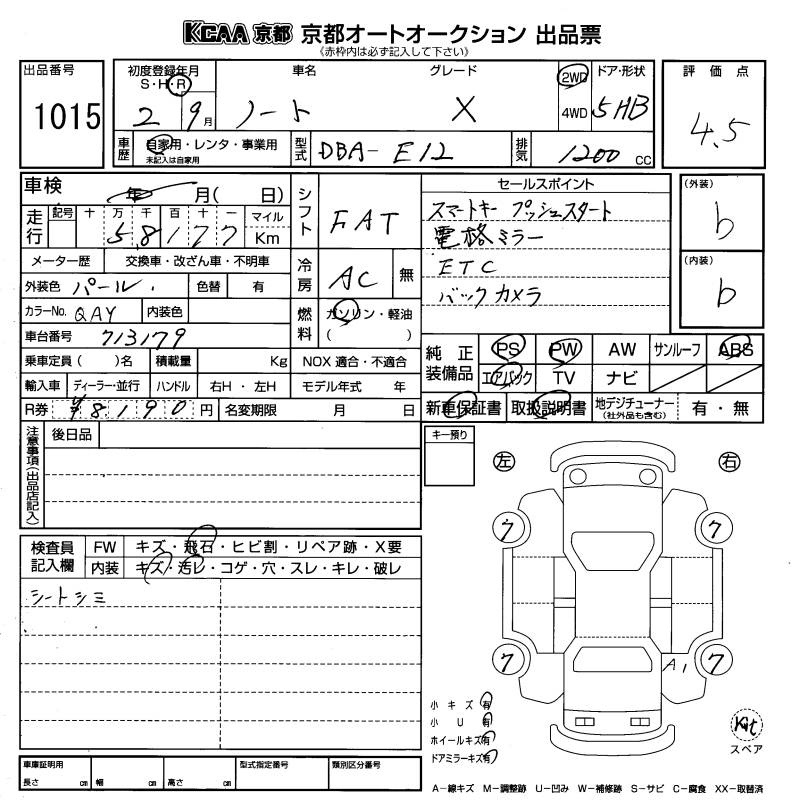 KCAA 京都 京都オートオークション 出品票
《赤枠内は必ず記入して下さい》
出品番号 初度登録年月 車名 グレード 2WD ドア・形状 評価点
S・H・R
1015 2 9月 ノート X 4WD 5HB 4.5
車歴 自家用・レンタ・事業用 型式 DBA-E12 排気 1200 cc
未記入は自家用
車検 年 月( 日) シフト FAT セールスポイント (外装)
走行 記号 十 万 千 百 十 一 マイル スマートキー プッシュスタート b
5 8 1 7 7 Km 電格ミラー
メーター歴 交換車・改ざん車・不明車 冷房 AC 無 ETC (内装)
外装色 パール 色替 有 バックカメラ b
カラーNo. QAY 内装色 燃料 ガソリン・軽油
車台番号 713179 ( )
乗車定員( )名 積載量 Kg NOX 適合・不適合 純正装備品 PS PW AW サンルーフ ABS
輸入車 ディーラー・並行 ハンドル 右H・左H モデル年式 年 エアバック TV ナビ
R券 ¥8190円 名変期限 月 日 新車保証書 取扱説明書 地デジチューナー 有・無
(社外品も含む)
注意事項(出品店記入) 後日品 キー預り
左 右
検査員記入欄 FW キズ・飛石・ヒビ割・リペア跡・X要
内装 キズ・汚レ・コゲ・穴・スレ・キレ・破レ
シートシミ
7 7
7 A1 7
小キズ 有
小U 有
ホイールキズ 有
ドアミラーキズ 有
Kit
スペア
車庫証明用 型式指定番号 類別区分番号
長さ cm 幅 cm 高さ cm
A-線キズ M-調整跡 U-凹み W-補修跡 S-サビ C-腐食 XX-取替済